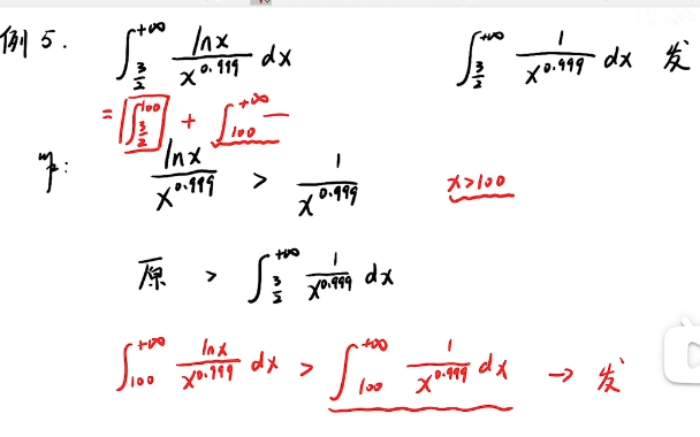 例 5. ∫_{3/2}^{+∞} lnx/x^{0.999} dx ∫_{3/2}^{+∞} 1/x^{0.999} dx 发
= ∫_{3/2}^{100} + ∫_{100}^{+∞} —
lnx/x^{0.999} > 1/x^{0.999} x>100
原 > ∫_{3/2}^{+∞} 1/x^{0.999} dx
∫_{100}^{+∞} lnx/x^{0.999} dx > ∫_{100}^{+∞} 1/x^{0.999} dx → 发